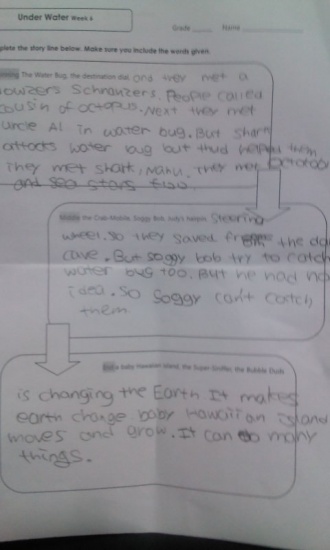 Under Water Week 4
Grade Name
plete the story line below. Make sure you include the words given.
The Water Bug, the destination disk and they met a
owzers Schnauzers. People called
ousin of octopus. Next they met
uncle Al in water bug. But shark
attacks water bug but thud helped them
They met shark, Nanu. They met octopus
and sea stars fish.
the Crab-Mobile, Soggy Bob, Judy's Steering
wheel. So they saved from the da
cave. But soggy bob try to catch
water bug too. But he had no
idea. So Soggy can't catch
them.
a baby Hawaiian Island, the Super Sniffer, the Bubble Duds
is changing the Earth It makes
earth change. baby Hawaiian island
moves and grow. It can do many
things.